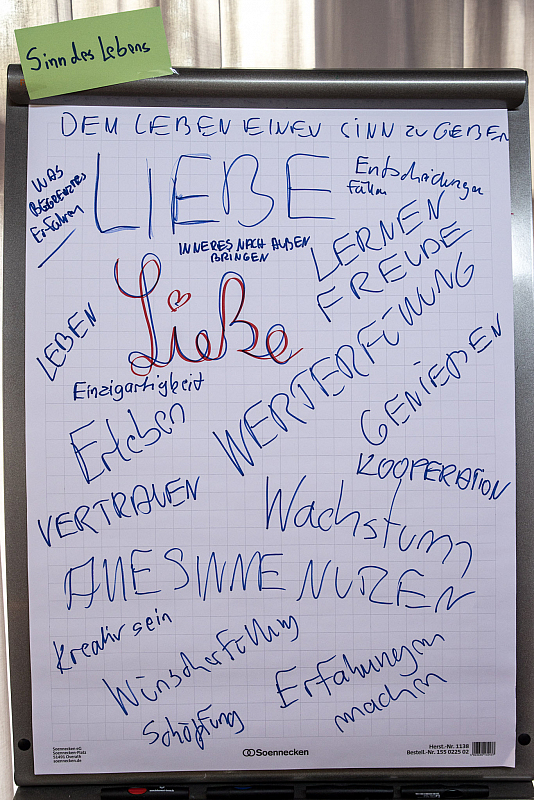 Sinn des Lebens
DEM LEBEN EINEN SINN ZU GEBEN
WAS
BEGRENZTES
Erfahren
LIEBE
Entscheidungen
fällen
INNERES NACH AUßEN
BRINGEN
LERNEN
FREUDE
LEBEN
Liebe
WERTERFÜLLUNG
Einzigartigkeit
GENIEßEN
Erleben
KOOPERATION
VERTRAUEN
Wachstum
ALLE SINNE NUTZEN
Kreativ sein
Wünscherfüllung
Erfahrungen
machen
Schöpfung
Soennecken eG
Soennecken-Platz
51491 Overath
soennecken.de
Soennecken
Herst.-Nr. 1138
Bestell.-Nr. 155 0225 02